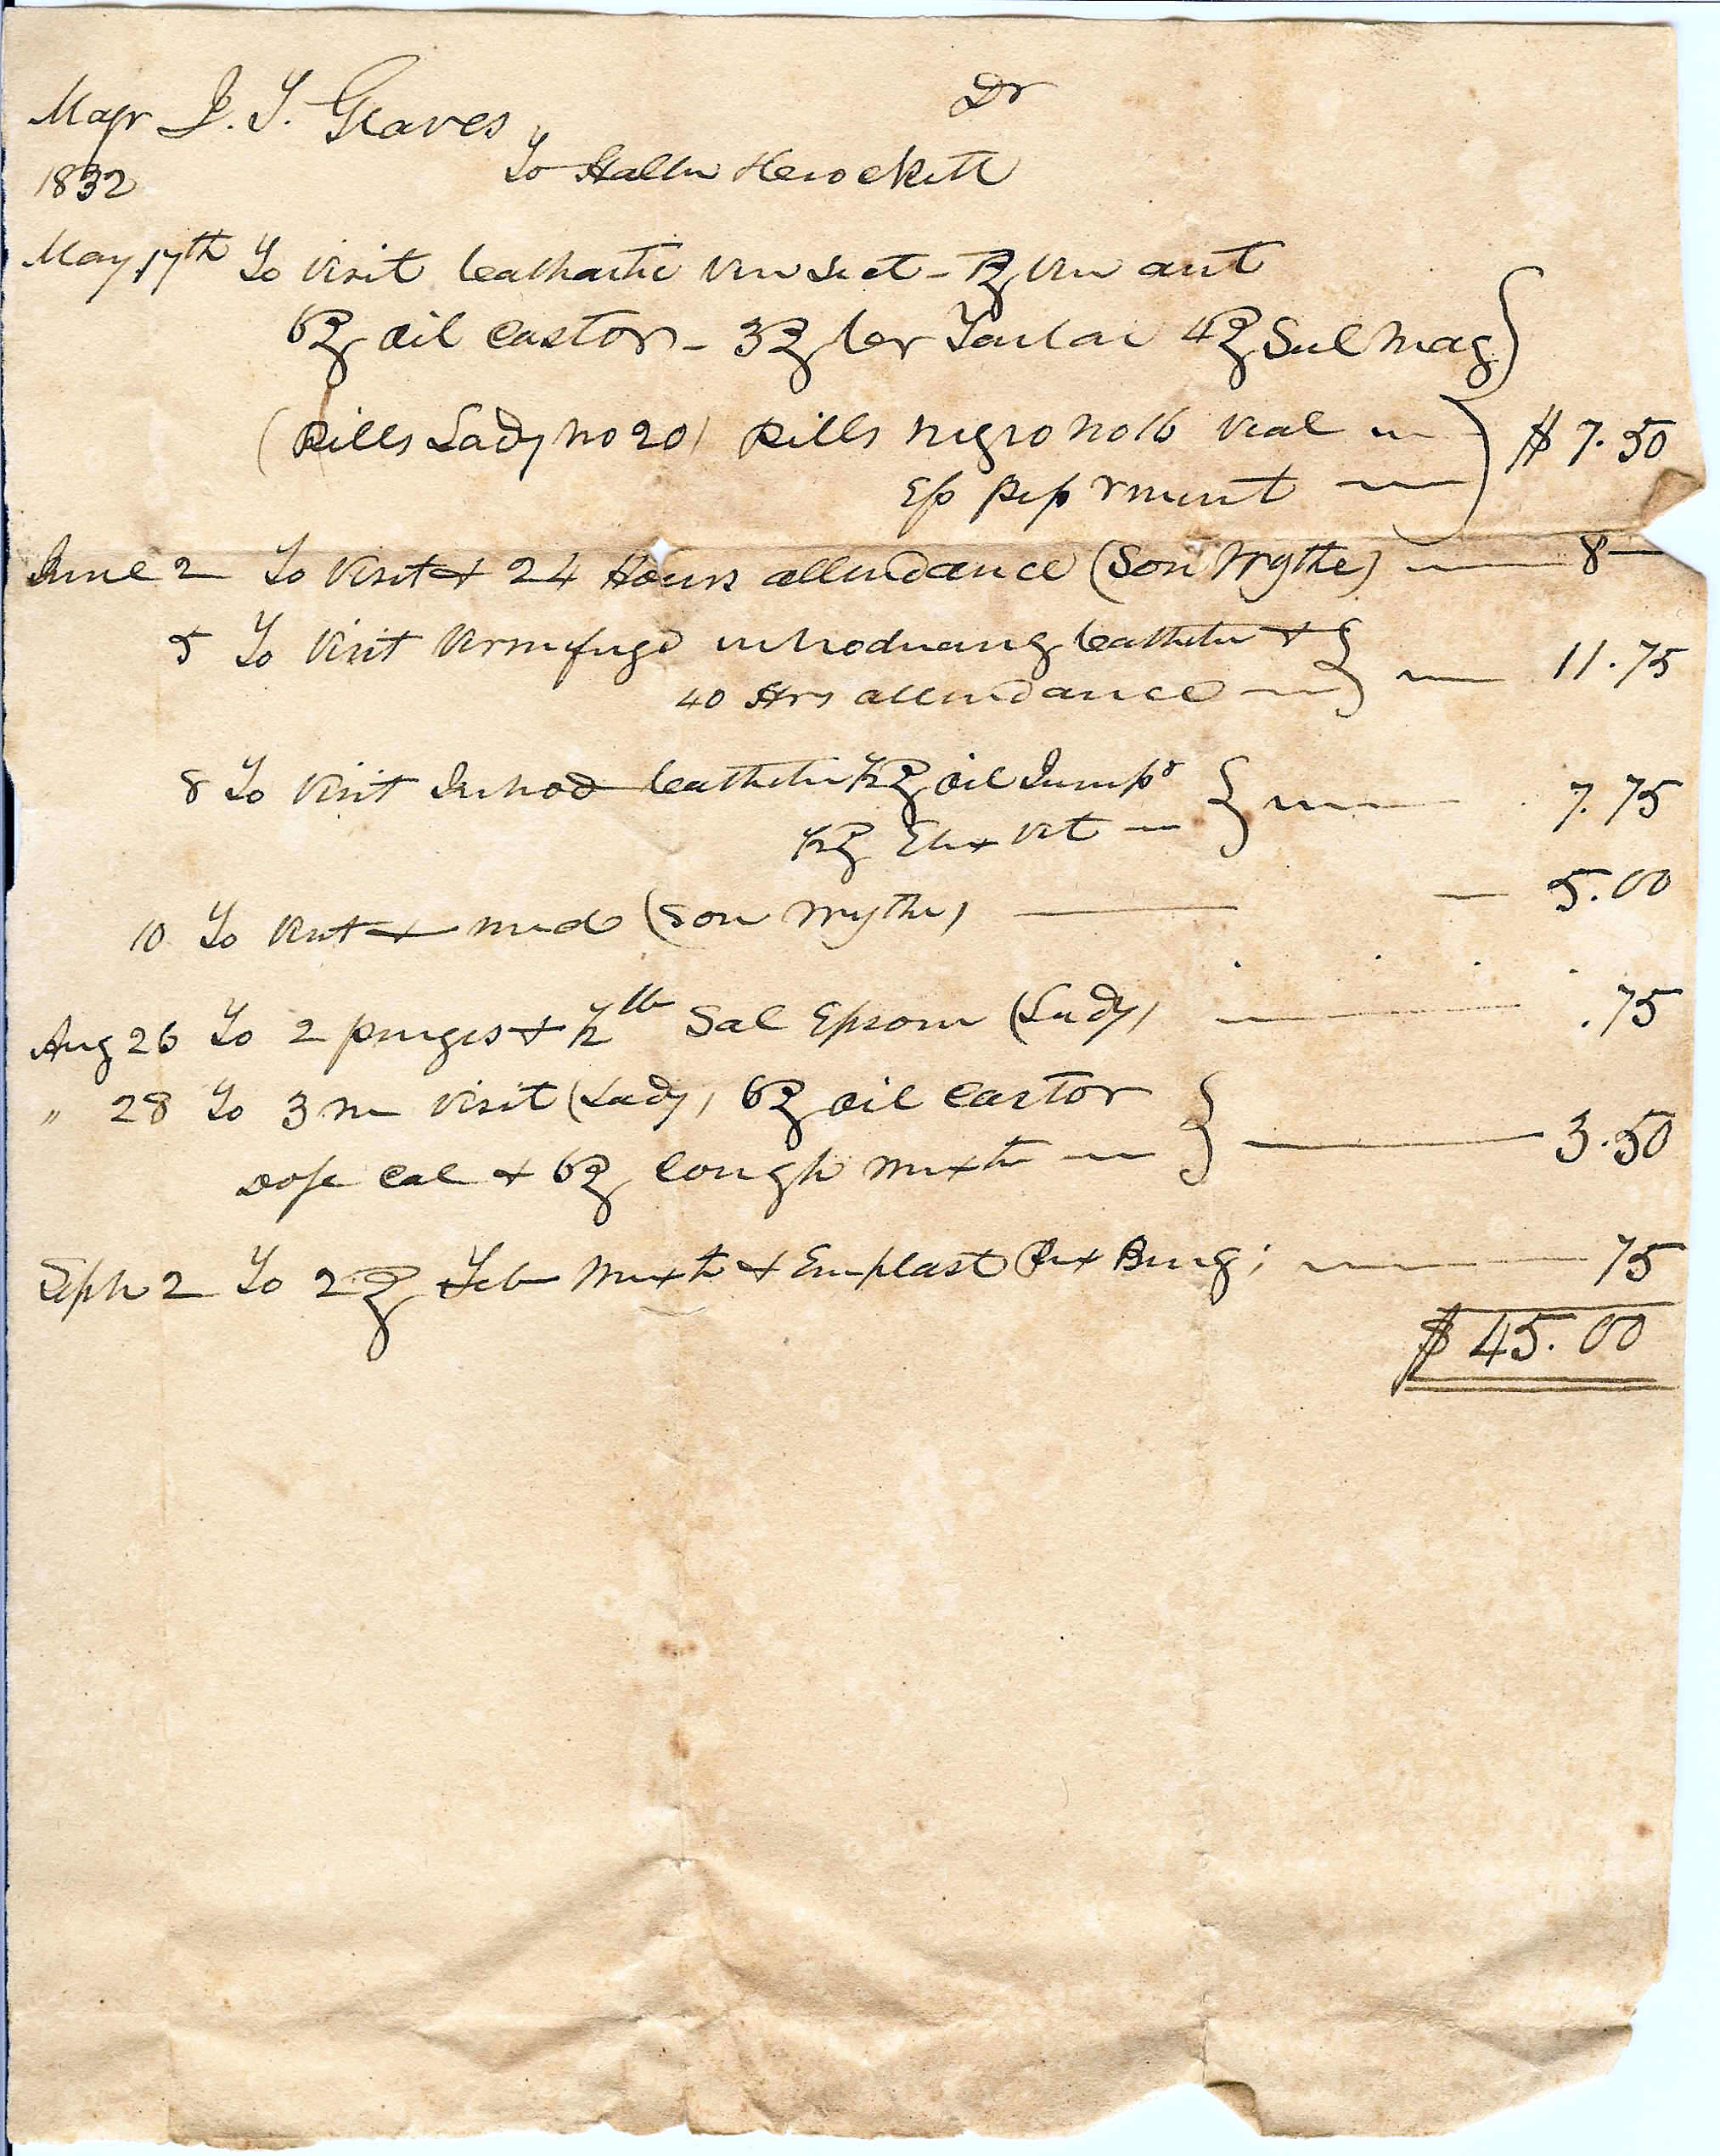 Majr J. T. Graves Dr
1832 To Haller & Crockett
May 17th To Visit Cathartic Ven Sect - ℥ Vin ant
6℥ oil castor - 3℥ Cr Tartar 4℥ Sul Mag
(Pills Lady No 20) Pills negro No 16 Vial
Ess pepprmint
$ 7.50
June 2 To Visit & 24 Hours attendance (Son Wythe) 8
5 To Visit Vermifuge introducing Catheter &
40 Hrs attendance 11.75
8 To Visit Introd Catheter ½℥ oil Junipr
½℥ Elix Vit 7.75
10 To Visit & med (Son Wythe) 5.00
Aug 26 To 2 purges & ½ lb Sal Epsom (Lady) .75
" 28 To 3 m visit (Lady) 6℥ oil Castor
Dose Cal & 6℥ Cough Mixtr 3.50
Septr 2 To 2℥ Feb Mixtr & Emplast Pix Burg; 75
$ 45.00